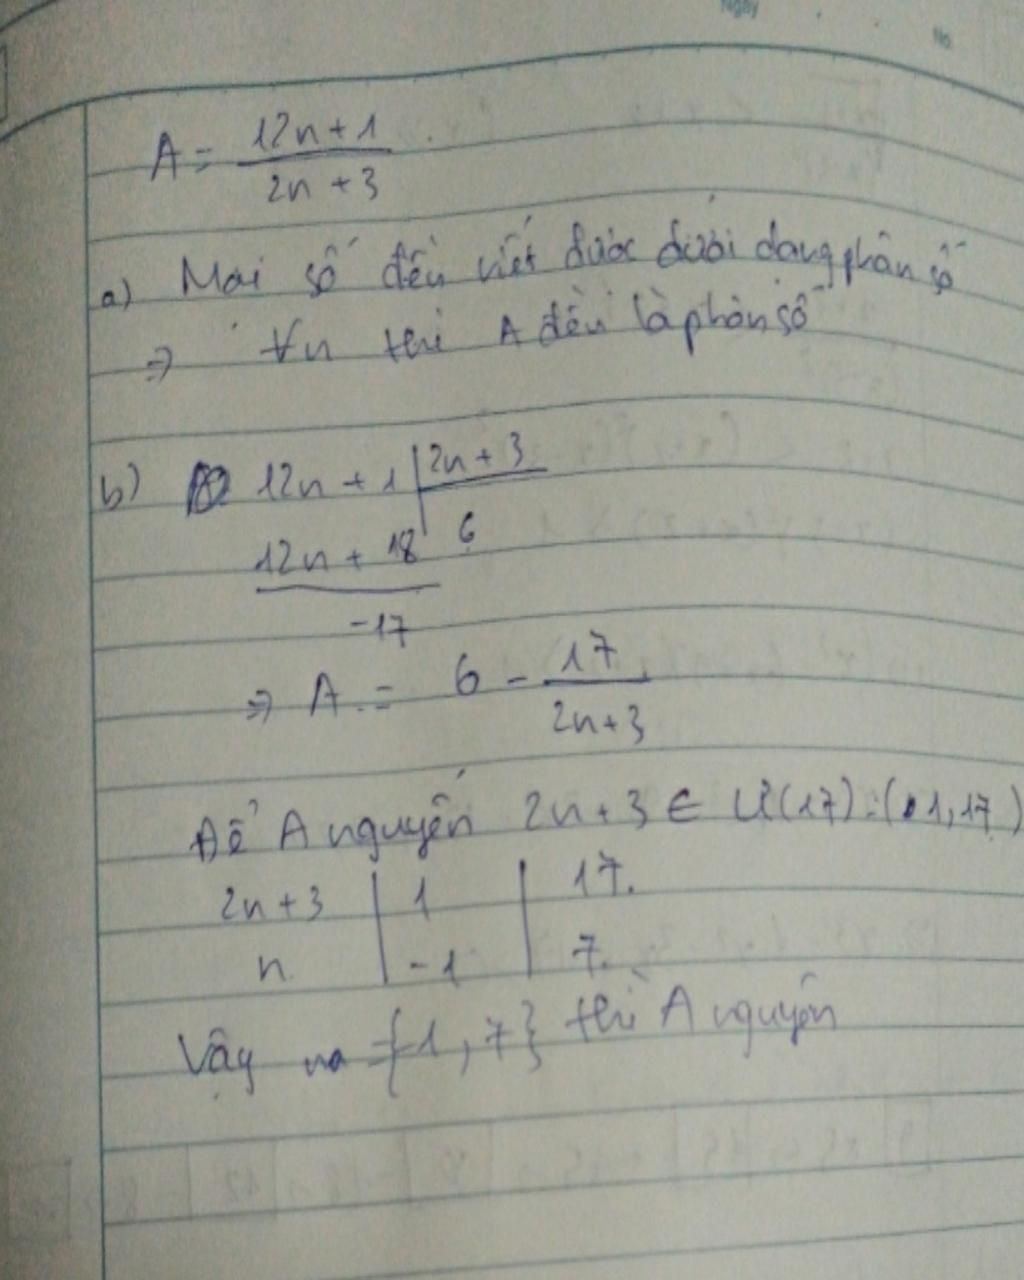 Ngày
No.
A = \frac{12n+1}{2n+3}
a) Mọi số đều viết được dưới dạng phân số
⇒ ∀n thì A đều là phân số
b) 12n + 1 | 2n + 3
12n + 18 | 6
-17
⇒ A = 6 - \frac{17}{2n+3}
Để A nguyên 2n+3 ∈ Ư(17) = (1, 17)
2n+3 | 1 | 17.
n | -1 | 7.
Vậy n = {-1, 7} thì A nguyên